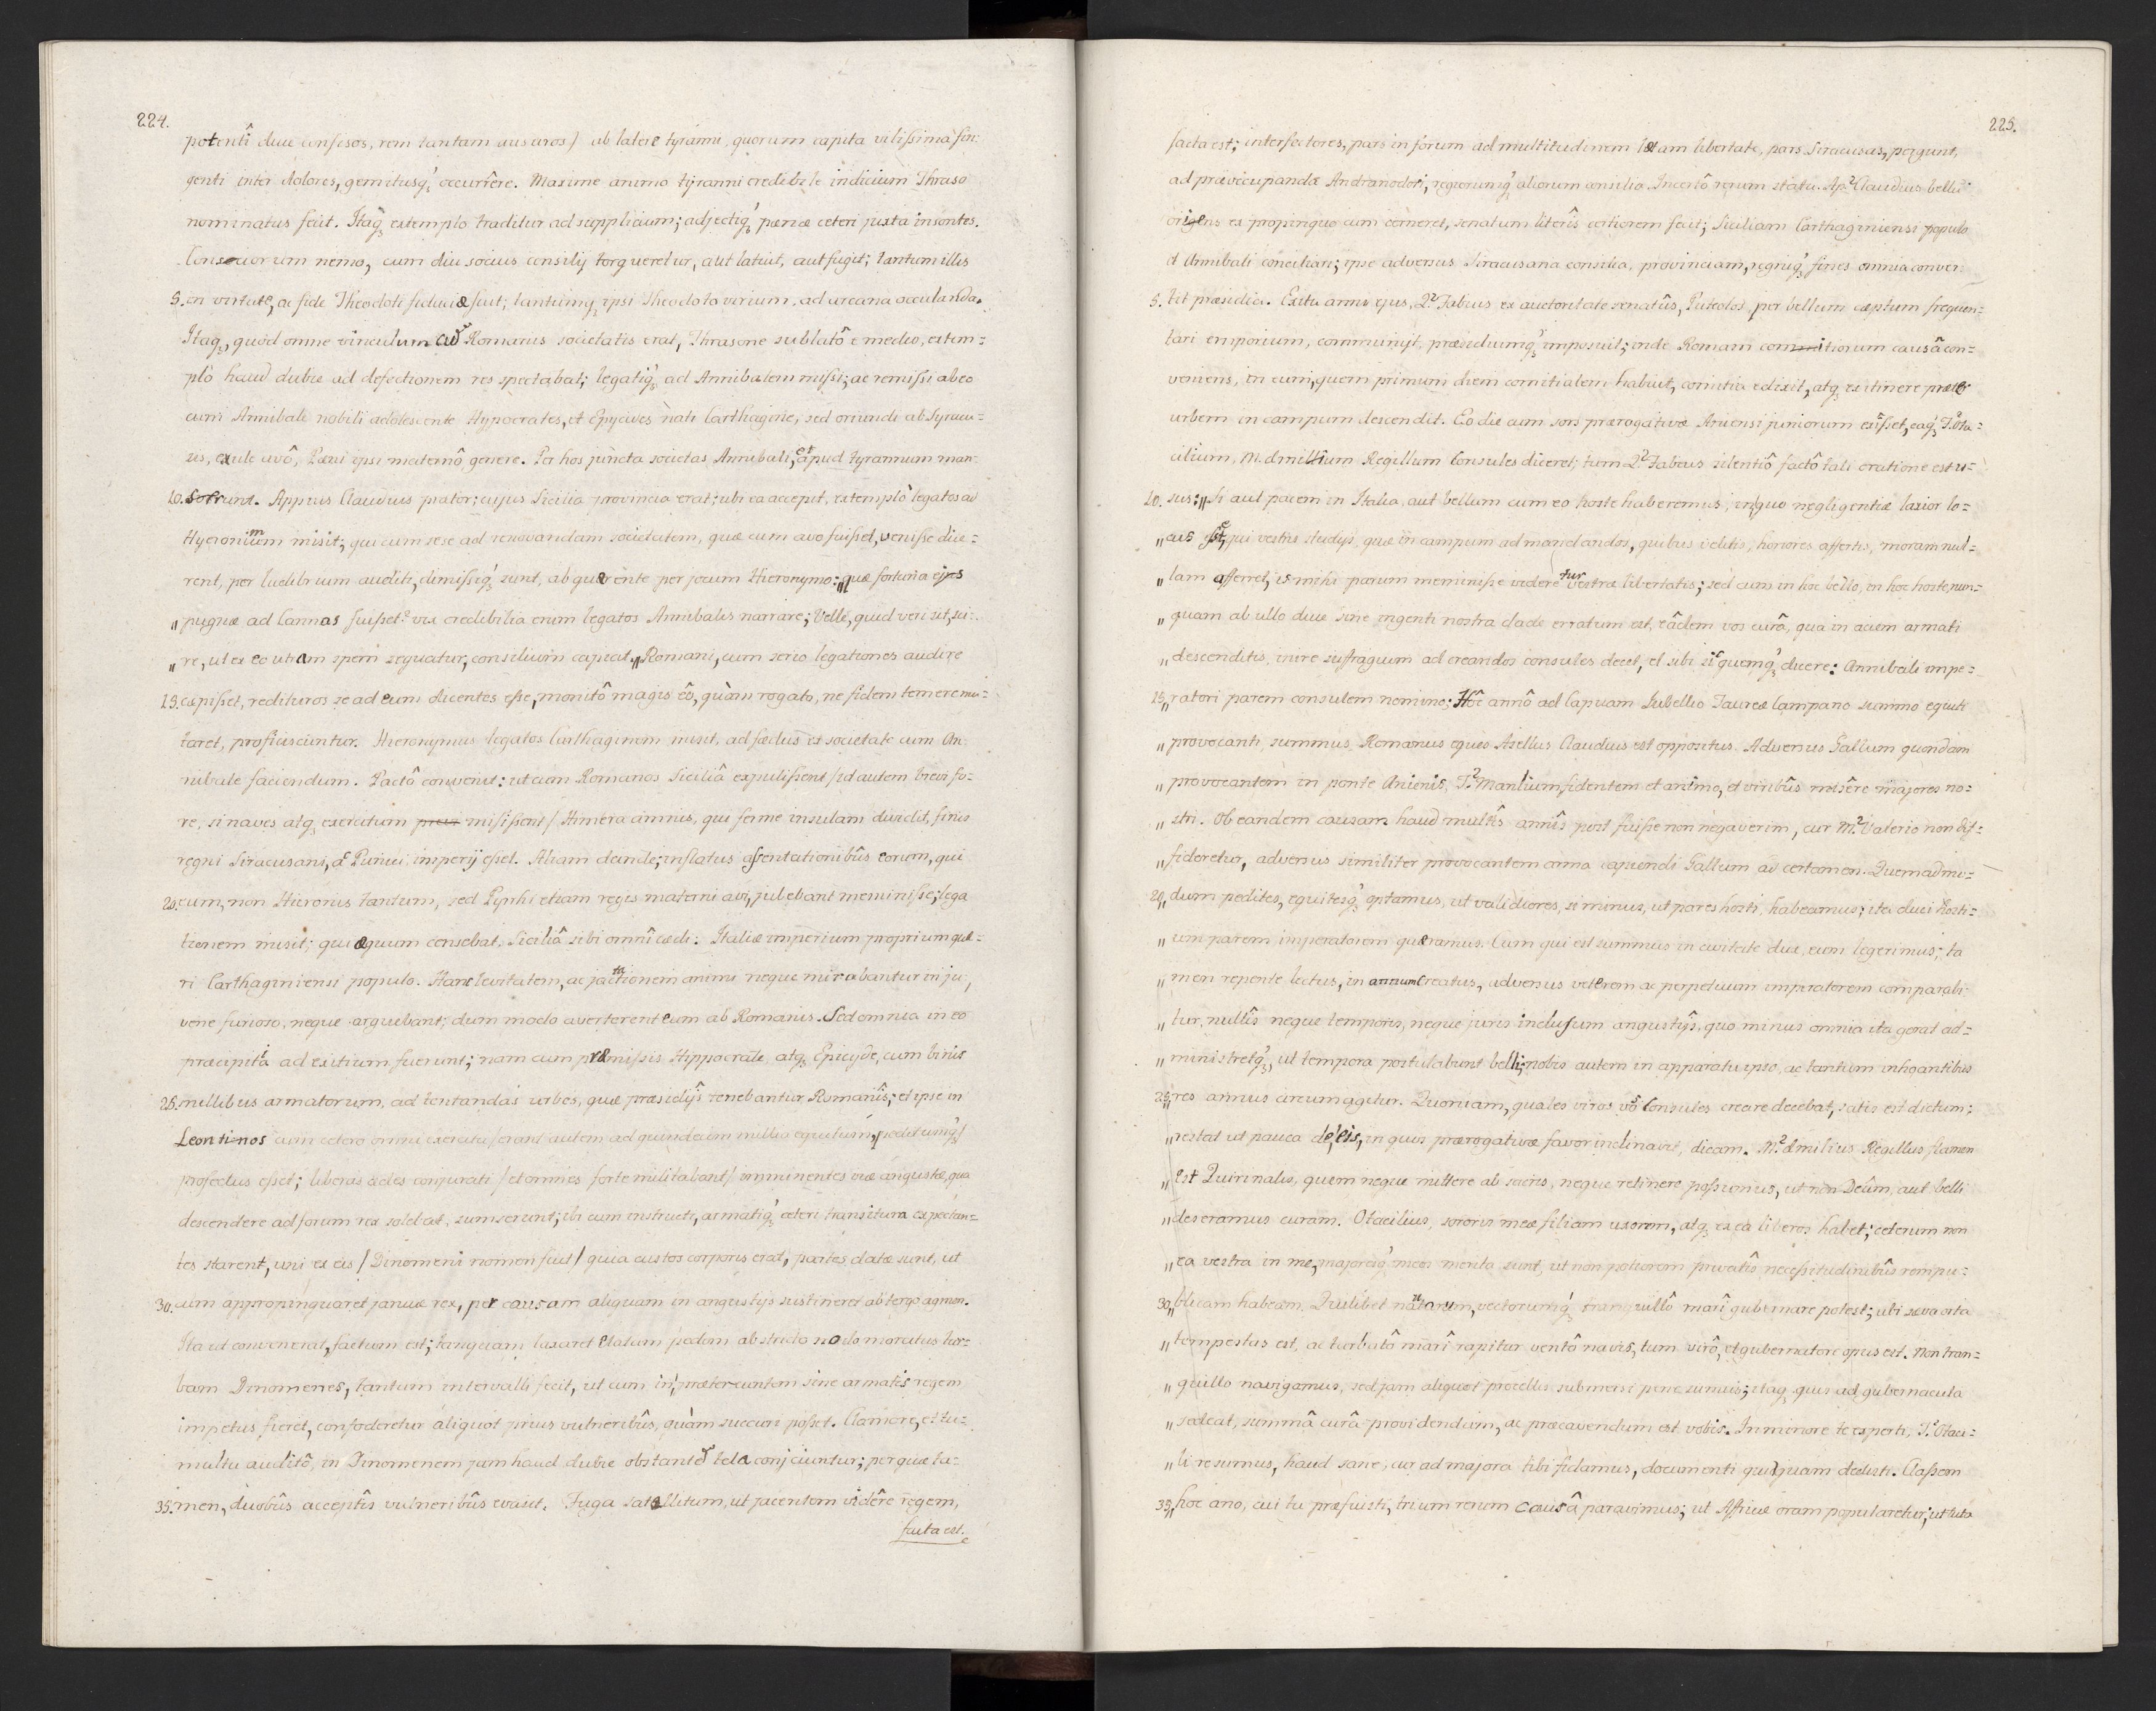 224.
potentî duce confisos, rem tantam ausuros) ab latere tyranni, quorum capita vilissima fin-
genti inter dolores, gemitusq; occurrêre. Maxime animo tyranni credibile indicium Thraso
nominatus fecit. Itaq; extemplo traditur ad supplicium; adjectiq; pœnæ ceteri juxta insontes.
Consciorum nemo, cum diu socius consilij torqueretur, aut latuit, aut fugit; tantum illis
5. in virtute, ac fide Theodoti fiduciæ fuit; tantumq; ipsi Theodoto virium, ad arcana occulanda.
Itaq;, quod omne vinculum cũ Romanis societatis erat, Thrasone sublatô e medio, extem=
plò haud dubie ad defectionem res spectabat; legatiq; ad Annibalem missi; ac remissi ab eo
cum Annibale nobili adolescente Hypocrates, et Epycides nati Carthagine, sed oriundi ab Syracu=
sis, exule avô, Pœni ipsi maternô genere. Per hos juncta societas Annibali, et apud tyrannum man-
10. serunt. Appius Claudius prætor; cujus Sicilia provincia erat; ubi ea accepit, extemplò legatos ad
Hyeronimum misit; qui cum sese ad renovandam societatem, quæ cum avo fuisset, venisse dice=
rent, per ludibrium auditi, dimissiq; sunt, ab quærente per jocum Hieronymo: „quæ fortuna ejus
„ pugnæ ad Cannas fuisset? vix credibilia enim legatos Annibalis narrare; Velle, quid veri sit, sci-
„ re, ut ex eo utram spem sequatur, consilium capiat. „Romani, cum serio legationes audire
15. cæpisset, redituros se ad eum dicentes esse, monitô magis eô, quàm rogato, ne fidem temere mu=
taret, proficiscuntur. Hieronymus legatos Carthaginem misit, ad fœdus ex societate cum An-
nibale faciendum. Pactô convenit: ut cum Romanos Siciliâ expulissent /id autem brevi fo-
re, si naves atq; exercitum misissent/ Himera amnis, qui ferme insulam dividit, finis
regni Siracusani, ac Punici imperij esset. Aliam deinde; inflatus assentationibûs eorum, qui
20. eum, non Hieronis tantum, sed Pyrrhi etiam regis materni avi, jubebant meminisse; lega
tionem misit; qui æquum censebat, Siciliâ sibi omnî cedi: Italiæ imperium proprium quæ=
ri Carthaginiensi populo. Hanc levitatem, ac jactationem animi neque mirabantur in ju,
vene furioso, neque arguebant; dum modo averterent eum ab Romanis. Sed omnia in eo
præcipitia ad exitium fuerunt; nam cum præmissis Hippocrate, atq; Epicyde, cum binis
25. millibus armatorum, ad tentandas urbes, quæ præsidijs tenebantur Romanîs; et ipse in
Leontinos cum cetero omni exercitu /erant autem ad quindecim millia equitum, peditumq;/
profectus esset; liberas ædes conjurati /et omnes forte militabant/ imminentes viæ angustæ, qua
descendere ad forum rex solebat, sumserunt; ibi cum instructi, armatiq; ceteri transitum expectan=
tes starent, uni ex eis /Dinomeni nomen fuit/ quia custos corporis erat, partes datæ sunt, ut
30. cum appropinquaret januæ rex, per causam aliquam in angustijs sustineret ab tergo agmen.
Ita ut convenerat, factum est; tanquam laxaret elatum pedem ab stricto nodo moratus tur=
bam Dinomenes, tantum intervalli fecit, ut cum in prætereuntem sine armatis regem
impetus fieret, confoderetur aliquot prius vulneribûs, quàm succurri posset. Clamore, et tu-
multu auditô, in Dinomenem jam haud dubie obstantẽ tela conjiciuntur; per quæ ta-
35. men, duobûs acceptîs vulneribûs evasit. Fuga satellitum, ut jacentem vidêre regem,
facta est.
225.
facta est; interfectores, pars in forum ad multitudinem lætam libertate, pars Siracusas, pergunt,
ad præoccupanda Andranodori, regiorumq; aliorum consilia. Incertô rerum statu. Ap? Claudius bellũ
oriens ex propinquo cum cerneret, senatum literîs certiorem fecit; Siciliam Carthaginiensi populo
et Annibali conciliari; ipse adversus Siracusana consilia, provinciam, regniq; fines omnia conver-
5. tit præsidia. Exitu anni ejus, Q? Fabius ex auctoritate senatûs, Puteolos, per bellum cæptum frequen=
tari emporium, communijt, præsidiumq; imposuit; inde Romam comitiorum causâ con=
veniens, in eum, quem primum diem comitialem habuit, comitia edixit, atq; ex itinere præter
urbem in campum descendit. Eo die cum sors prærogativæ Aniensi juniorum exîsset, eaq; T? Ota=
cilium, M. Æmilium Regillum Consules diceret; tum Q? Fabius silentiô factô tali oratione est u=
10. sus: „Si aut pacem in Italia, aut bellum cum eo hoste haberemus, in quo negligentiæ laxior lo=
„ cus esset, qui vestris studijs, quæ in campum ad mandandos, quibus velitis, honores affertis, moram nul-
„ lam afferret, is mihi parum meminisse videretur vestræ libertatis; sed cum in hoc bello, in hoc hoste nun-
„ quam ab ullo duce sine ingenti nostra clade erratum est, eâdem vos curâ, qua in aciem armati
„ descenditis, inire suffragium ad creandos consules decet, et sibi sic quemq; dicere: Annibali impe=
15. „ ratori parem consulem nomino; Hôc annô ad Capuam Jubellio Taureæ Campano summo equiti
„ provocanti, summus Romanus eques Asellus Claudius est oppositus. Adversus Gallum quondam
„ provocantem in ponte Anienis, T? Manlium fidentem et animo, et viribûs misêre majores no=
„ stri. Ob eandem causam haud multîs annîs post fuisse non negaverim, cur M? Valerio non dif=
„ fideretur, adversus similiter provocantem arma capienti Gallum ad certamen. Quemadmo=
20. „ dum pedites, equitesq; optamus, ut validiores, si minus, ut pares hosti, habeamus; ita duci hosti=
„ um parem imperatorem quæramus. Cum qui est summus in civitate dux, eum legerimus; ta
„ men repente lectus, in annum creatus, adversus veterem ac perpetuum imperatorem comparabi-
„ tur, nullîs neque temporis, neque juris inclusum angustijs, quo minus omnia ita gerat ad=
„ ministretq;, ut tempora postulabunt belli; nobis autem in apparatu ipso, ac tantum inhoantibus
25. „ res annus circumagitur. Quoniam, quales viros vôs Consules creare decebat, satis est dictum;
„ restat ut pauca de eis, in quos prærogativæ favor inclinavit, dicam. M? Æmilius Regillus flamen
„ est Quirinalis, quem neque mittere ab sacris, neque retinere possumus, ut non Deûm, aut belli
„ deseramus curam. Otacilius, sororis meæ filiam uxorem, atq; ex ea liberos habet; ceterum non
„ ea vestra in me, majoresq; meos merita sunt, ut non potiorem privatîs necessitudinibûs rempu=
30. „ blicam habeam. Quilibet nautarum, vectorumq; tranquillô marî gubernare potest; ubi sæva orta
„ tempestas est, ac turbatô marî rapitur ventô navis, tum virô, et gubernatore opus est. Non tran=
„ quillo navigamus, sed jam aliquot procellis submersi pene sumus; itaq; quis ad gubernacula
„ sedeat, summâ curâ providendum, ac præcavendum est vobis. In minore te experti, T? Otaci=
„ li re sumus, haud sane, cur ad majora tibi fidamus, documenti quidquam dedisti. Classem
35. „ hoc año, cui tu præfuisti, trium rerum causâ paravimus; ut Affricæ oram popularetur; ut tuta